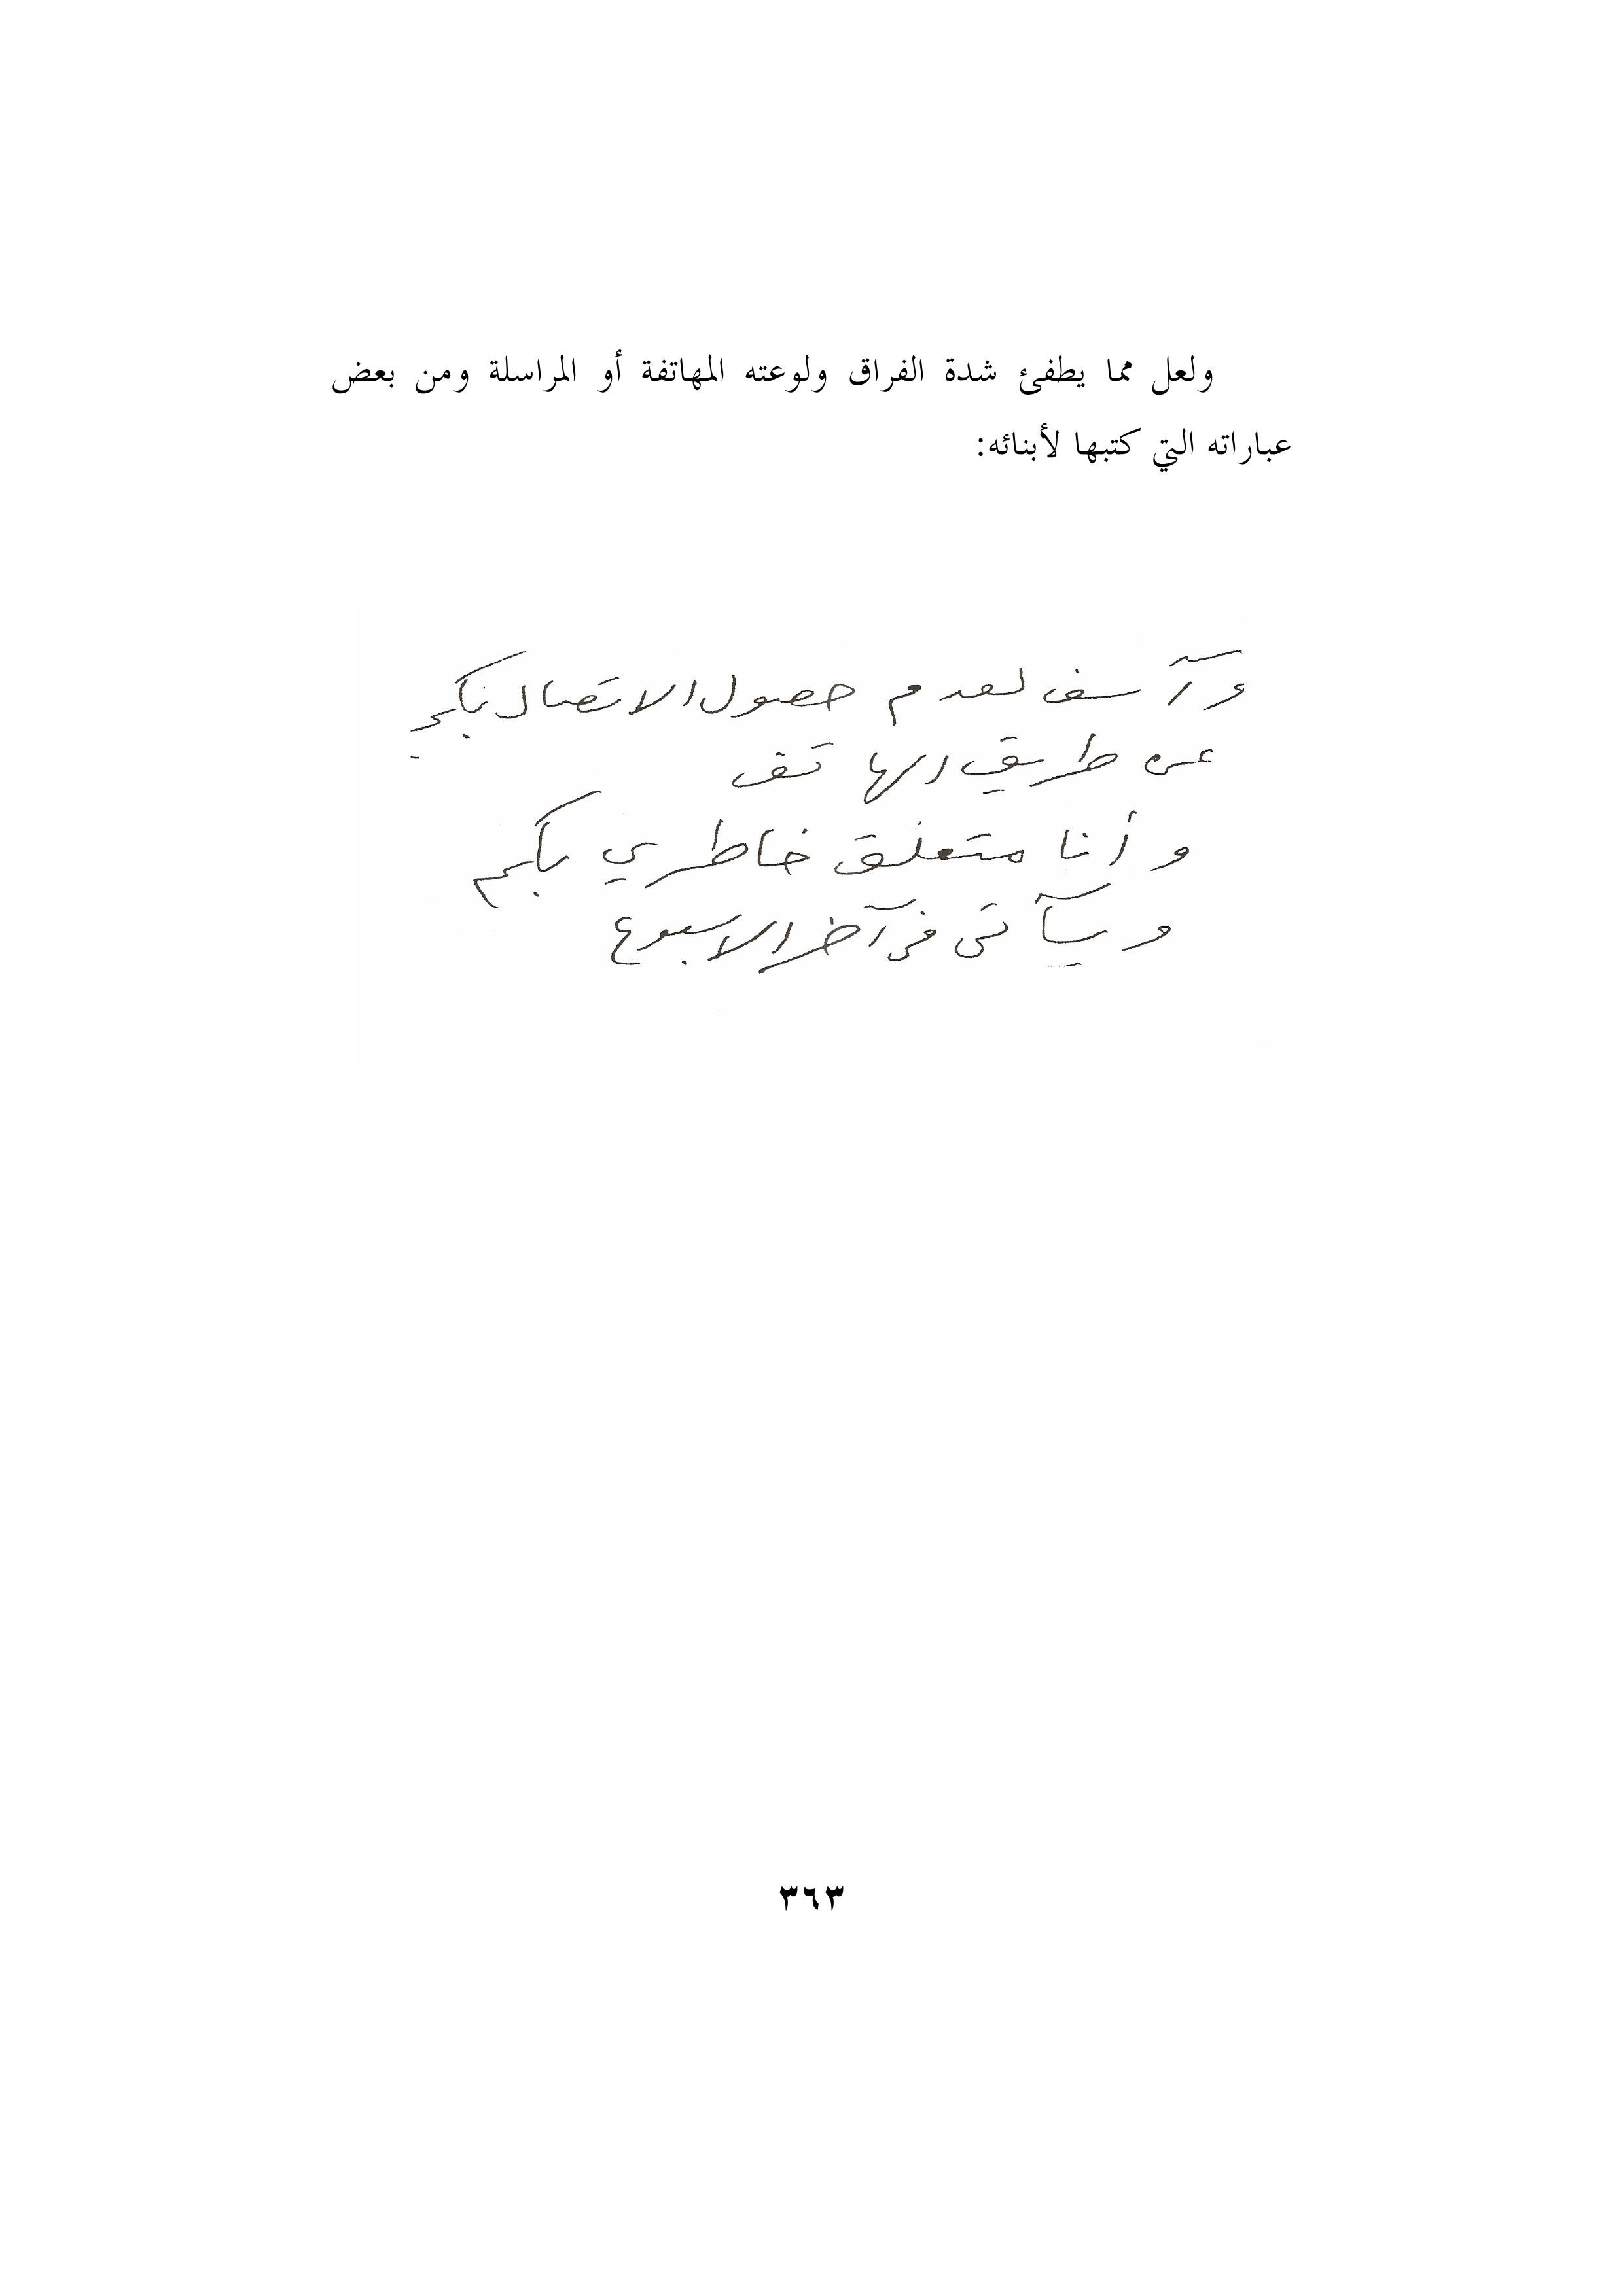 ولعل مما يطفئ شدة الفراق ولوعته المهاتفة أو المراسلة ومن بعض
عباراته التي كتبها لأبنائه:
و آسف لعدم حصول الاتصال بكم
عن طريق الهاتف
و أنا متعلق خاطري بكم
و سآتي في آخر الاسبوع
٣٦٣